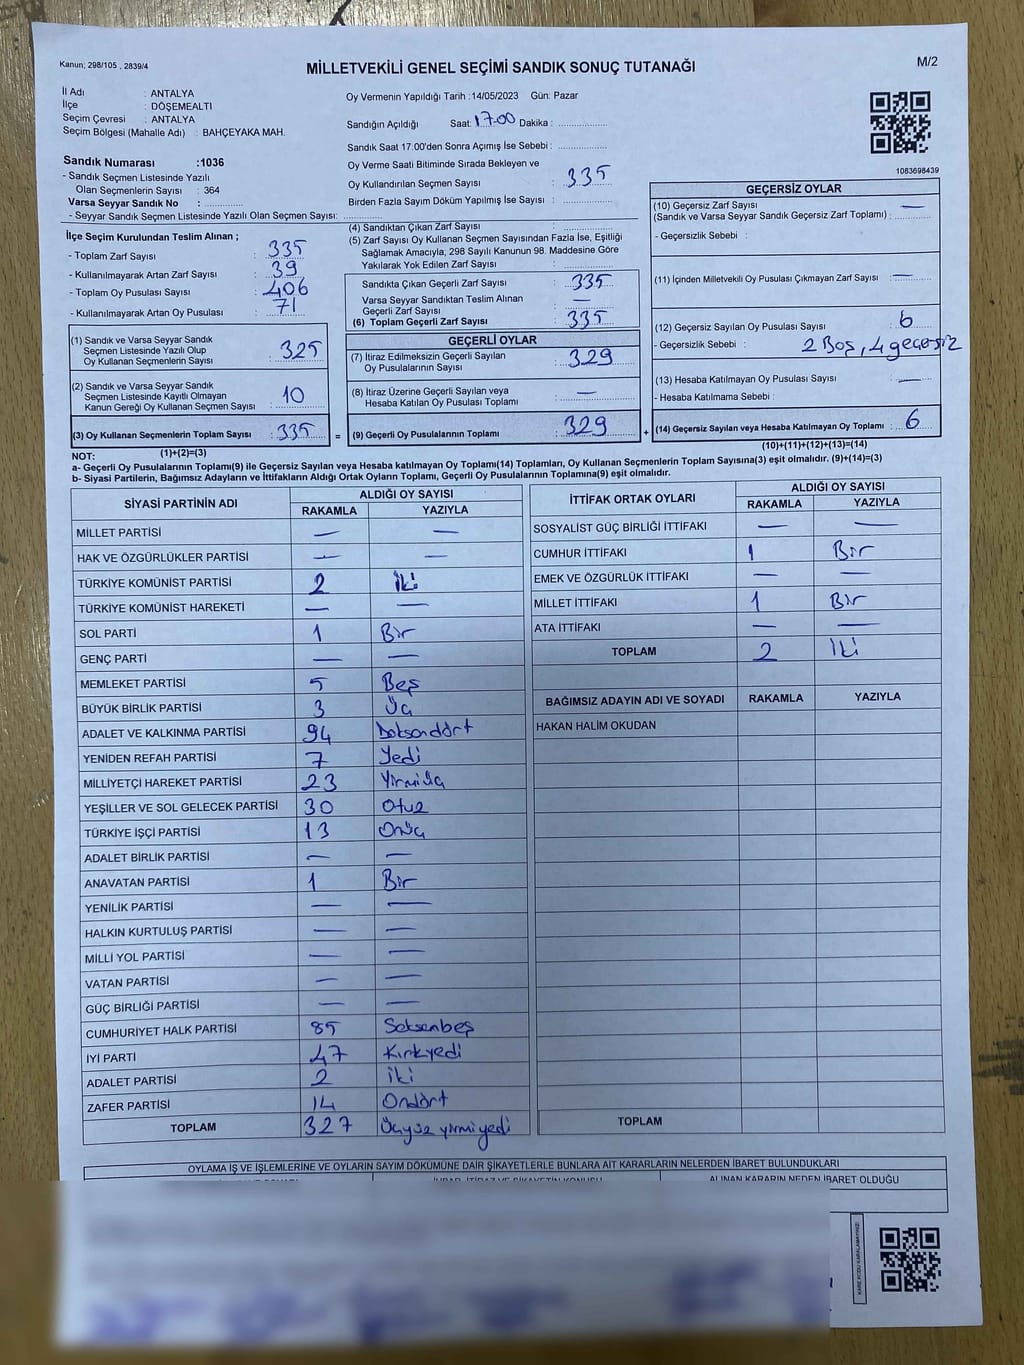 Kanun; 298/105 , 2839/4
MİLLETVEKİLİ GENEL SEÇİMİ SANDIK SONUÇ TUTANAĞI
M/2
İl Adı : ANTALYA
İlçe : DÖŞEMEALTI
Seçim Çevresi : ANTALYA
Seçim Bölgesi (Mahalle Adı) : BAHÇEYAKA MAH.
Sandık Numarası :1036
- Sandık Seçmen Listesinde Yazılı
Olan Seçmenlerin Sayısı : 364
Varsa Seyyar Sandık No :
- Seyyar Sandık Seçmen Listesinde Yazılı Olan Seçmen Sayısı:
Oy Vermenin Yapıldığı Tarih :14/05/2023 Gün: Pazar
Sandığın Açıldığı Saat: 17.00 Dakika :
Sandık Saat 17.00'den Sonra Açımış İse Sebebi :
Oy Verme Saati Bitiminde Sırada Bekleyen ve
Oy Kullandırılan Seçmen Sayısı : 335
Birden Fazla Sayım Döküm Yapılmış İse Sayısı :
1083698439
İlçe Seçim Kurulundan Teslim Alınan ;
- Toplam Zarf Sayısı : 335
- Kullanılmayarak Artan Zarf Sayısı : 39
- Toplam Oy Pusulası Sayısı : 406
- Kullanılmayarak Artan Oy Pusulası : 71
(1) Sandık ve Varsa Seyyar Sandık
Seçmen Listesinde Yazılı Olup
Oy Kullanan Seçmenlerin Sayısı : 325
(2) Sandık ve Varsa Seyyar Sandık
Seçmen Listesinde Kayıtlı Olmayan
Kanun Gereği Oy Kullanan Seçmen Sayısı : 10
(3) Oy Kullanan Seçmenlerin Toplam Sayısı : 335
(1)+(2)=(3)
(4) Sandıktan Çıkan Zarf Sayısı :
(5) Zarf Sayısı Oy Kullanan Seçmen Sayısından Fazla İse, Eşitliği
Sağlamak Amacıyla; 298 Sayılı Kanunun 98. Maddesine Göre
Yakılarak Yok Edilen Zarf Sayısı :
Sandıkta Çıkan Geçerli Zarf Sayısı : 335
Varsa Seyyar Sandıktan Teslim Alınan
Geçerli Zarf Sayısı : —
(6) Toplam Geçerli Zarf Sayısı : 335
GEÇERLİ OYLAR
(7) İtiraz Edilmeksizin Geçerli Sayılan
Oy Pusulalarının Sayısı : 329
(8) İtiraz Üzerine Geçerli Sayılan veya
Hesaba Katılan Oy Pusulası Toplamı : —
= (9) Geçerli Oy Pusulalarının Toplamı : 329
GEÇERSİZ OYLAR
(10) Geçersiz Zarf Sayısı —
(Sandık ve Varsa Seyyar Sandık Geçersiz Zarf Toplamı) :
- Geçersizlik Sebebi :
(11) İçinden Milletvekili Oy Pusulası Çıkmayan Zarf Sayısı : —
(12) Geçersiz Sayılan Oy Pusulası Sayısı : 6
- Geçersizlik Sebebi : 2 Boş, 4 geçersiz
(13) Hesaba Katılmayan Oy Pusulası Sayısı : —
- Hesaba Katılmama Sebebi :
+ (14) Geçersiz Sayılan veya Hesaba Katılmayan Oy Toplamı : 6
(10)+(11)+(12)+(13)=(14)
NOT:
a- Geçerli Oy Pusulalarının Toplamı(9) ile Geçersiz Sayılan veya Hesaba katılmayan Oy Toplamı(14) Toplamları, Oy Kullanan Seçmenlerin Toplam Sayısına(3) eşit olmalıdır. (9)+(14)=(3)
b- Siyasi Partilerin, Bağımsız Adayların ve İttifakların Aldığı Ortak Oyların Toplamı, Geçerli Oy Pusulalarının Toplamına(9) eşit olmalıdır.
SİYASİ PARTİNİN ADI ALDIĞI OY SAYISI
RAKAMLA YAZIYLA
MİLLET PARTİSİ — —
HAK VE ÖZGÜRLÜKLER PARTİSİ — —
TÜRKİYE KOMÜNİST PARTİSİ 2 İki
TÜRKİYE KOMÜNİST HAREKETİ — —
SOL PARTİ 1 Bir
GENÇ PARTİ — —
MEMLEKET PARTİSİ 5 Beş
BÜYÜK BİRLİK PARTİSİ 3 Üç
ADALET VE KALKINMA PARTİSİ 94 Doksandört
YENİDEN REFAH PARTİSİ 7 Yedi
MİLLİYETÇİ HAREKET PARTİSİ 23 Yirmiüç
YEŞİLLER VE SOL GELECEK PARTİSİ 30 Otuz
TÜRKİYE İŞÇİ PARTİSİ 13 Onüç
ADALET BİRLİK PARTİSİ — —
ANAVATAN PARTİSİ 1 Bir
YENİLİK PARTİSİ — —
HALKIN KURTULUŞ PARTİSİ — —
MİLLİ YOL PARTİSİ — —
VATAN PARTİSİ — —
GÜÇ BİRLİĞİ PARTİSİ — —
CUMHURİYET HALK PARTİSİ 85 Seksenbeş
İYİ PARTİ 47 Kırkyedi
ADALET PARTİSİ 2 iki
ZAFER PARTİSİ 14 Ondört
TOPLAM 327 Üçyüz yirmiyedi
İTTİFAK ORTAK OYLARI ALDIĞI OY SAYISI
RAKAMLA YAZIYLA
SOSYALİST GÜÇ BİRLİĞİ İTTİFAKI — —
CUMHUR İTTİFAKI 1 Bir
EMEK VE ÖZGÜRLÜK İTTİFAKI — —
MİLLET İTTİFAKI 1 Bir
ATA İTTİFAKI — —
TOPLAM 2 İki
BAĞIMSIZ ADAYIN ADI VE SOYADI RAKAMLA YAZIYLA
HAKAN HALİM OKUDAN
TOPLAM
OYLAMA İŞ VE İŞLEMLERİNE VE OYLARIN SAYIM DÖKÜMÜNE DAİR ŞİKAYETLERLE BUNLARA AİT KARARLARIN NELERDEN İBARET BULUNDUKLARI
ALINAN KARARIN NEDEN İBARET OLDUĞU